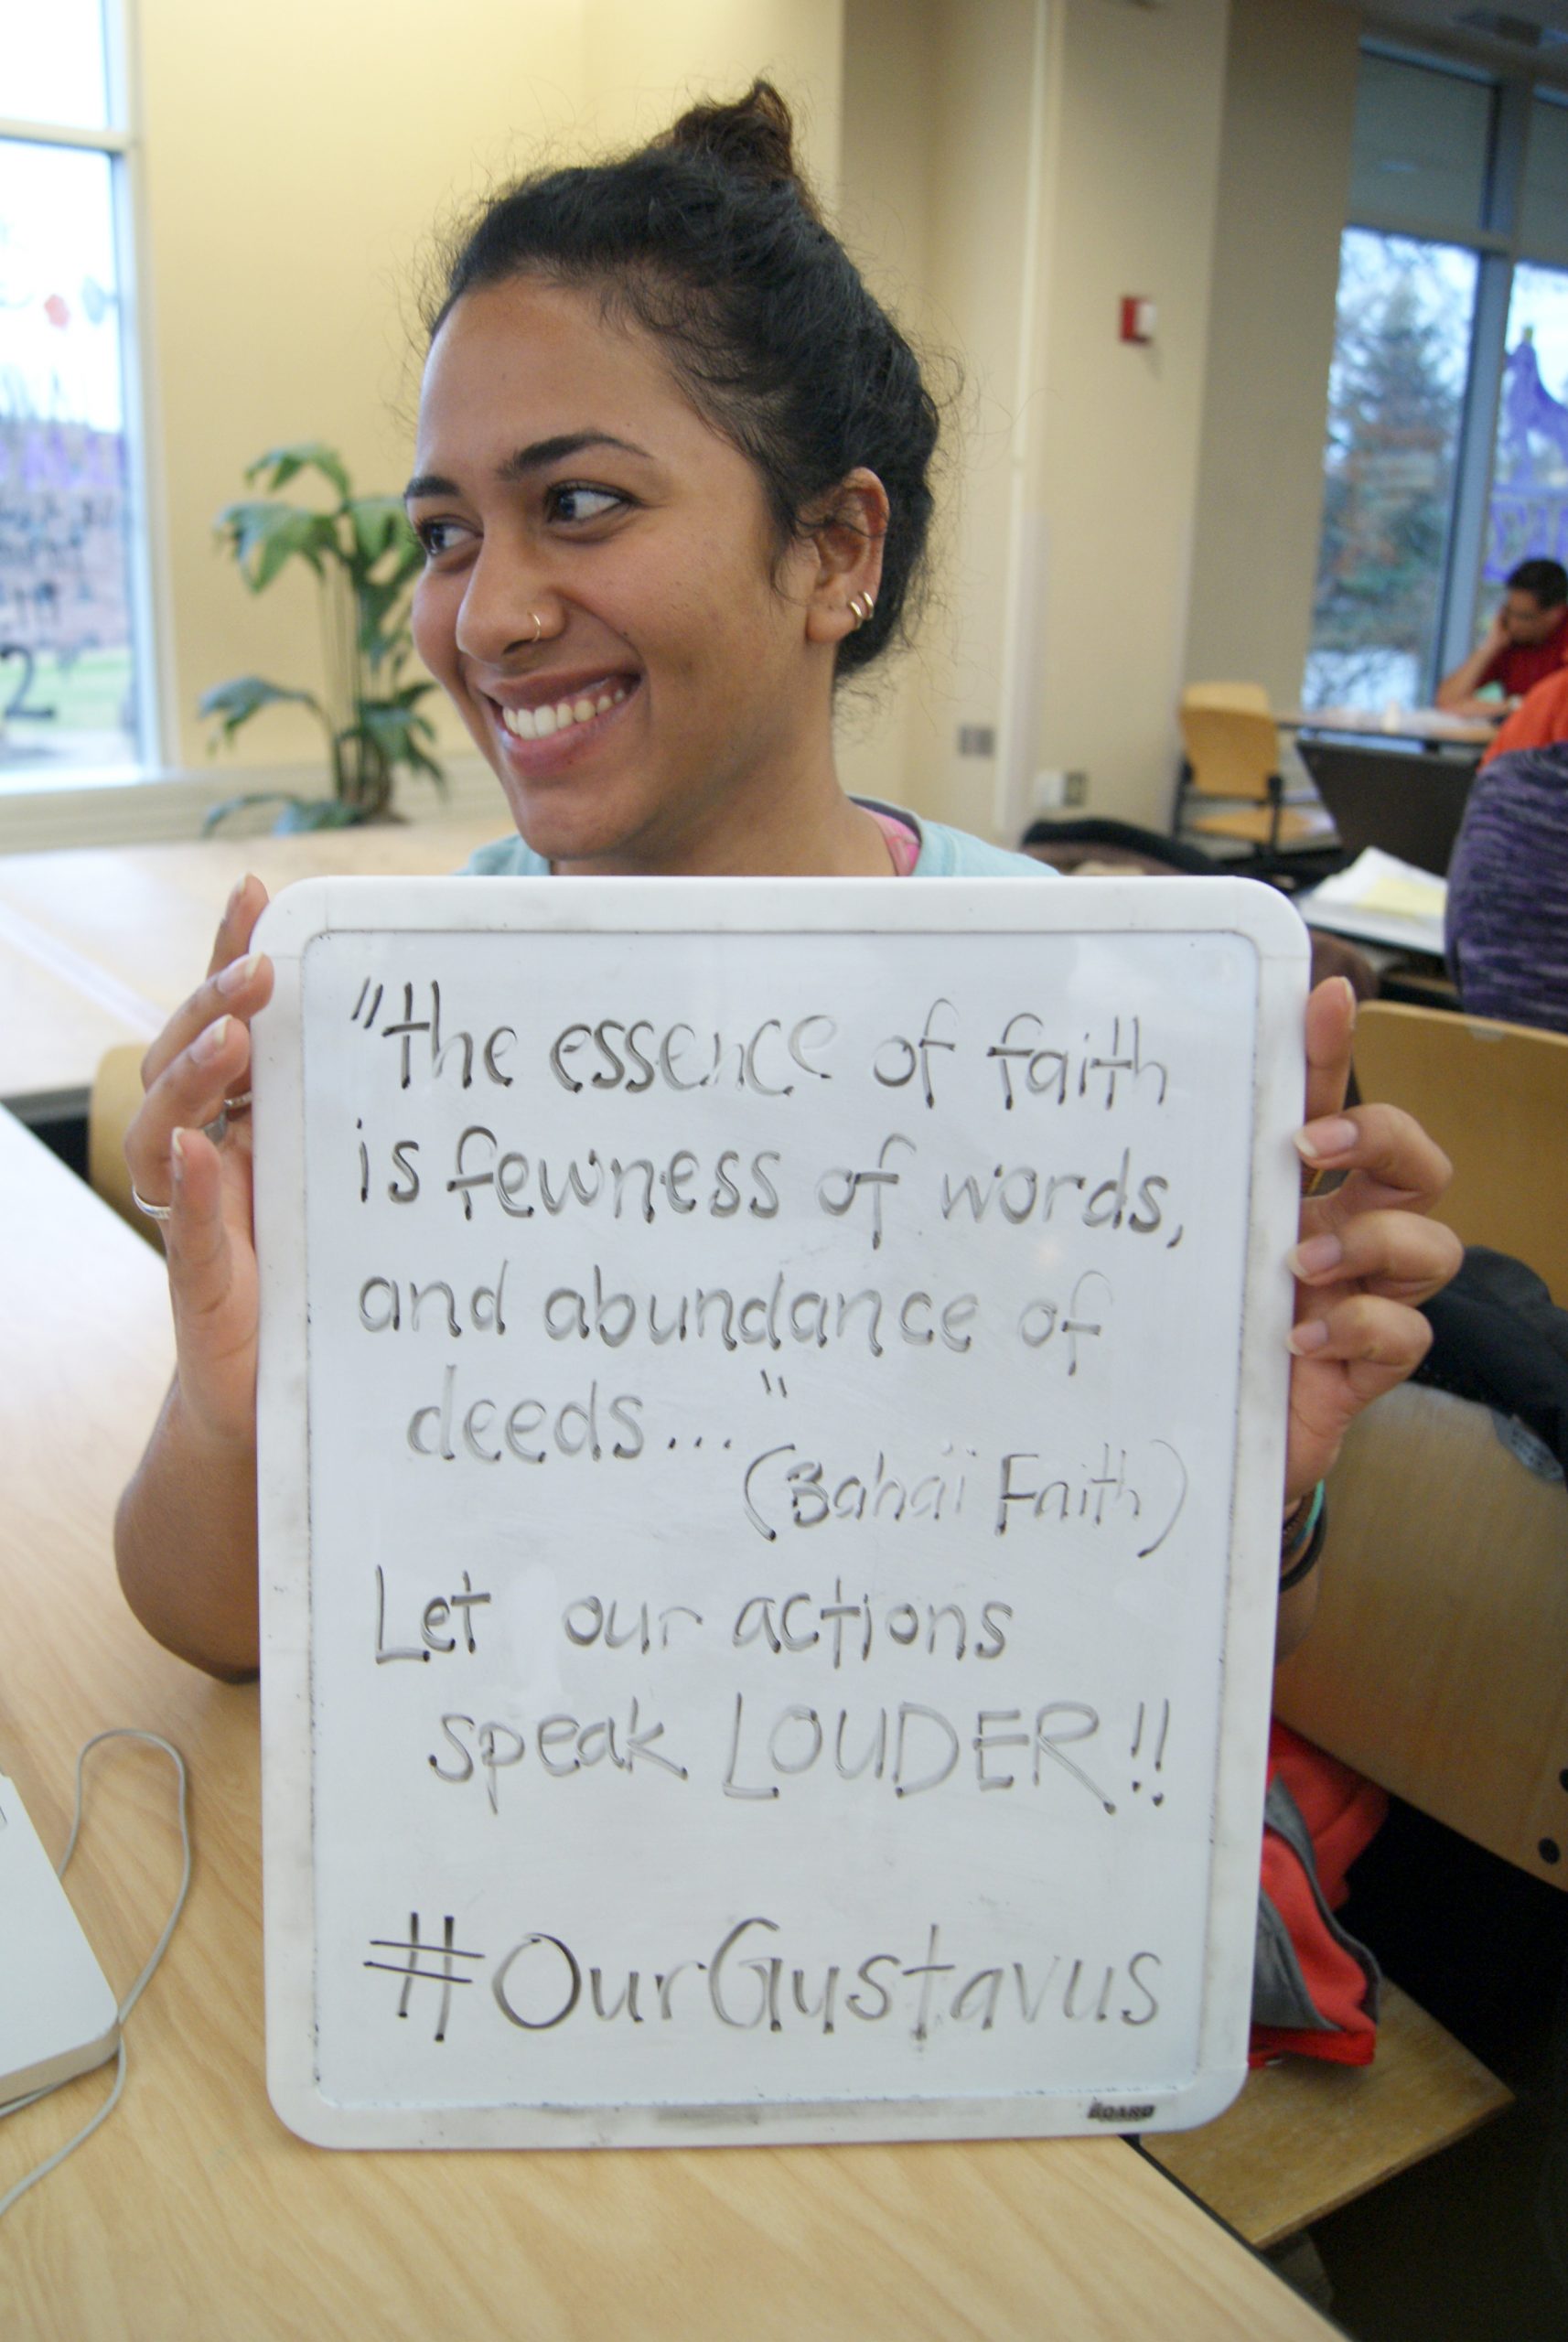 "the essence of faith
is fewness of words,
and abundance of
deeds..."
(Bahaï Faith)
Let our actions
speak LOUDER!!
#OurGustavus
BOARD
2